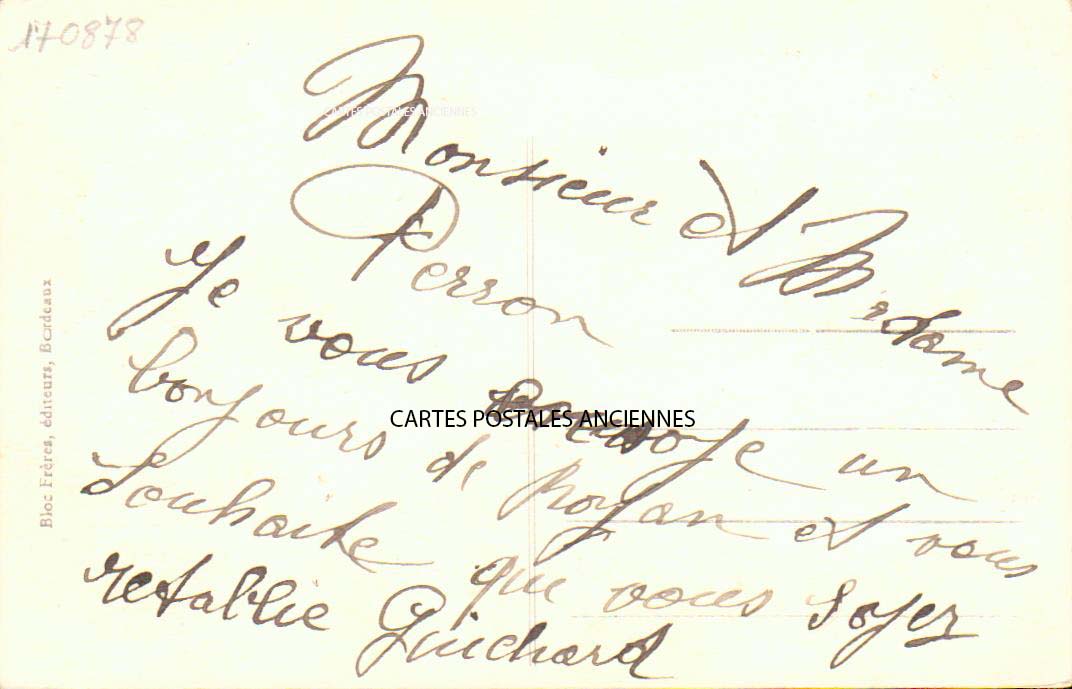 170878
CARTES POSTALES ANCIENNES
Monsieur et Madame
Perron
Je vous envoye un
CARTES POSTALES ANCIENNES
bonjours de Royan et vous
souhaite que vous soyez
retablie Guichard
Bloc Frères, éditeurs, Bordeaux